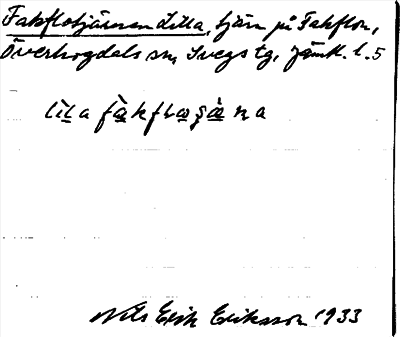 Fakflotjärnen Lilla, tjärn på Fakflon,
Överhogdals sn, Svegs tg, Jämtl. l. 5
lìla fàkfloşæ̀na
Nils Erik Eriksson 1933